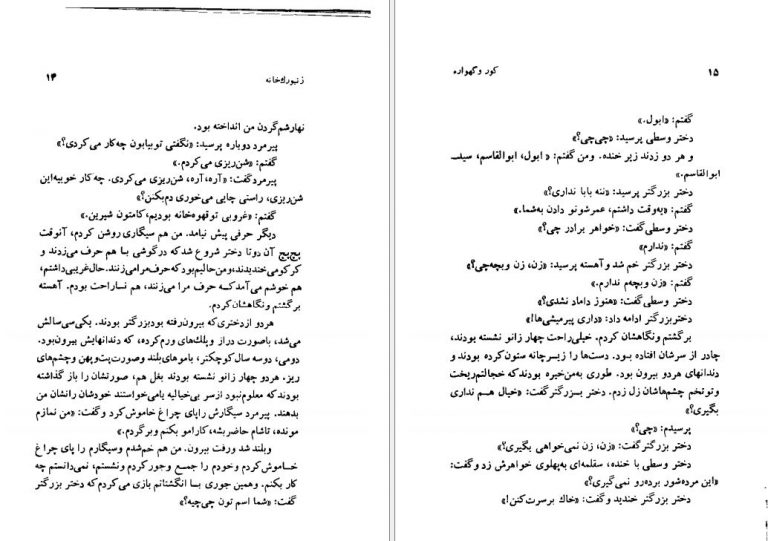 ۱۴
زنبورك‌خانه
نهارشم‌گردن من انداخته بود.
پیرمرد دوباره پرسید: «نگفتی توبیابون چه‌کار می‌کردی؟»
گفتم: «شن‌ریزی می‌کردم.»
پیرمردگفت: «آره، آره، شن‌ریزی می‌کردی. چه‌کار خوبیه‌این
شن‌ریزی، راستی چایی می‌خوری دم‌بکنن؟»
گفتم: «غروبی توقهوه‌خانه بودیم، کامتون شیرین.»
دیگر حرفی پیش نیامد. من هم سیگاری روشن کردم، آنوقت
پچ‌پچ آن دوتا دختر شروع شدکه درگوشی بـا هـم حرف می‌زدند و
کرکرمی‌خندیدند، و من حالیم بودکه حرف‌مرا می‌زنند. حال‌غریبی‌داشتم،
هم خوشم می‌آمدکـه حرف مرا می‌زنند، هم نسـاراحت بودم. آهسته
برگشتم ونگاهشان‌کردم.
هردو ازدختری‌که بیرون‌رفته بودبزرگتر بودند. یکی‌سی‌سالش
می‌شد، باصورت دراز و پلك‌های ورم‌کرده، که دندانهایش بیرون‌بود.
دومی، دوسه سال‌کوچکتر، باموهای‌بلند وصورت‌پت‌وپهن وچشم‌های
ریز. هردو چهار زانو نشسته بودند بغل هم، صورتشان را باز گذاشته
بودندکه معلوم‌نبود ازسر بی‌خیالیه یامی‌خواستند خودشان رانشان من
بدهند. پیرمرد سیگارش راپای چراغ خاموش‌کرد وگفت: «من نمازم
مونده، تاشام حاضربشه، کارامو بکنم وبرگردم.»
وبلند شد ورفت بیرون. من هم خم‌شدم وسیگارم را پای چراغ
خـاموش‌کردم وخودم را جمـع وجورکردم ونشستم، نمی‌دانستم چه
کار بکنم. وهمین جوری بـا انگشتانم بازی می‌کردم‌که دختر بزرگتر
گفت: «شما اسم تون چی‌چیه؟»
۱۵
کور و گهواره
گفتم: «ابول.»
دختر وسطی پرسید: «چی‌چی؟»
و هر دو زدند زیر خنده. ومن گفتم: « ابول، ابوالقاسم، سیـد
ابوالقاسم.»
دختر بزرگتر پرسید: «ننه بابا نداری؟»
گفتم: «یه‌وقت داشتم، عمرشونو دادن به‌شما.»
دختر وسطی‌گفت: «خواهر برادر چی؟»
گفتم: «ندارم»
دختر بزرگتر خم شد و آهسته پرسید: «زن، زن وبچه‌چی؟»
گفتم: «زن و‌بچه‌م ندارم.»
دختر وسطی گفت: «هنوز داماد نشدی؟»
دختربزرگتر ادامه داد: «داری پیرمیشی‌ها!»
برگشتم ونگاهشان کردم. خیلی‌راحت چهار زانو نشسته بودند،
چادر از سرشان افتاده بـود. دست‌ها را زیرچانه ستون‌کرده بودند و
دندانهای هردو بیرون بود. طوری به‌من‌خیره بودندکه خجالتم‌ریخت
وتوتخم چشم‌هاشان زل زدم. دختر بـزرگتر‌گفت: «خیال هـم نداری
بگیری؟»
پرسیدم: «چی؟»
دختر بزرگترگفت: «زن، زن نمی‌خواهی بگیری؟»
دختر وسطی با خنده، سقلمه‌ای به‌پهلوی خواهرش زد وگفت:
«این مرده‌شور برده‌رو نمی‌گیری؟»
دختر بزرگتر خندید و گفت: «خاك برسرت‌کنن!»